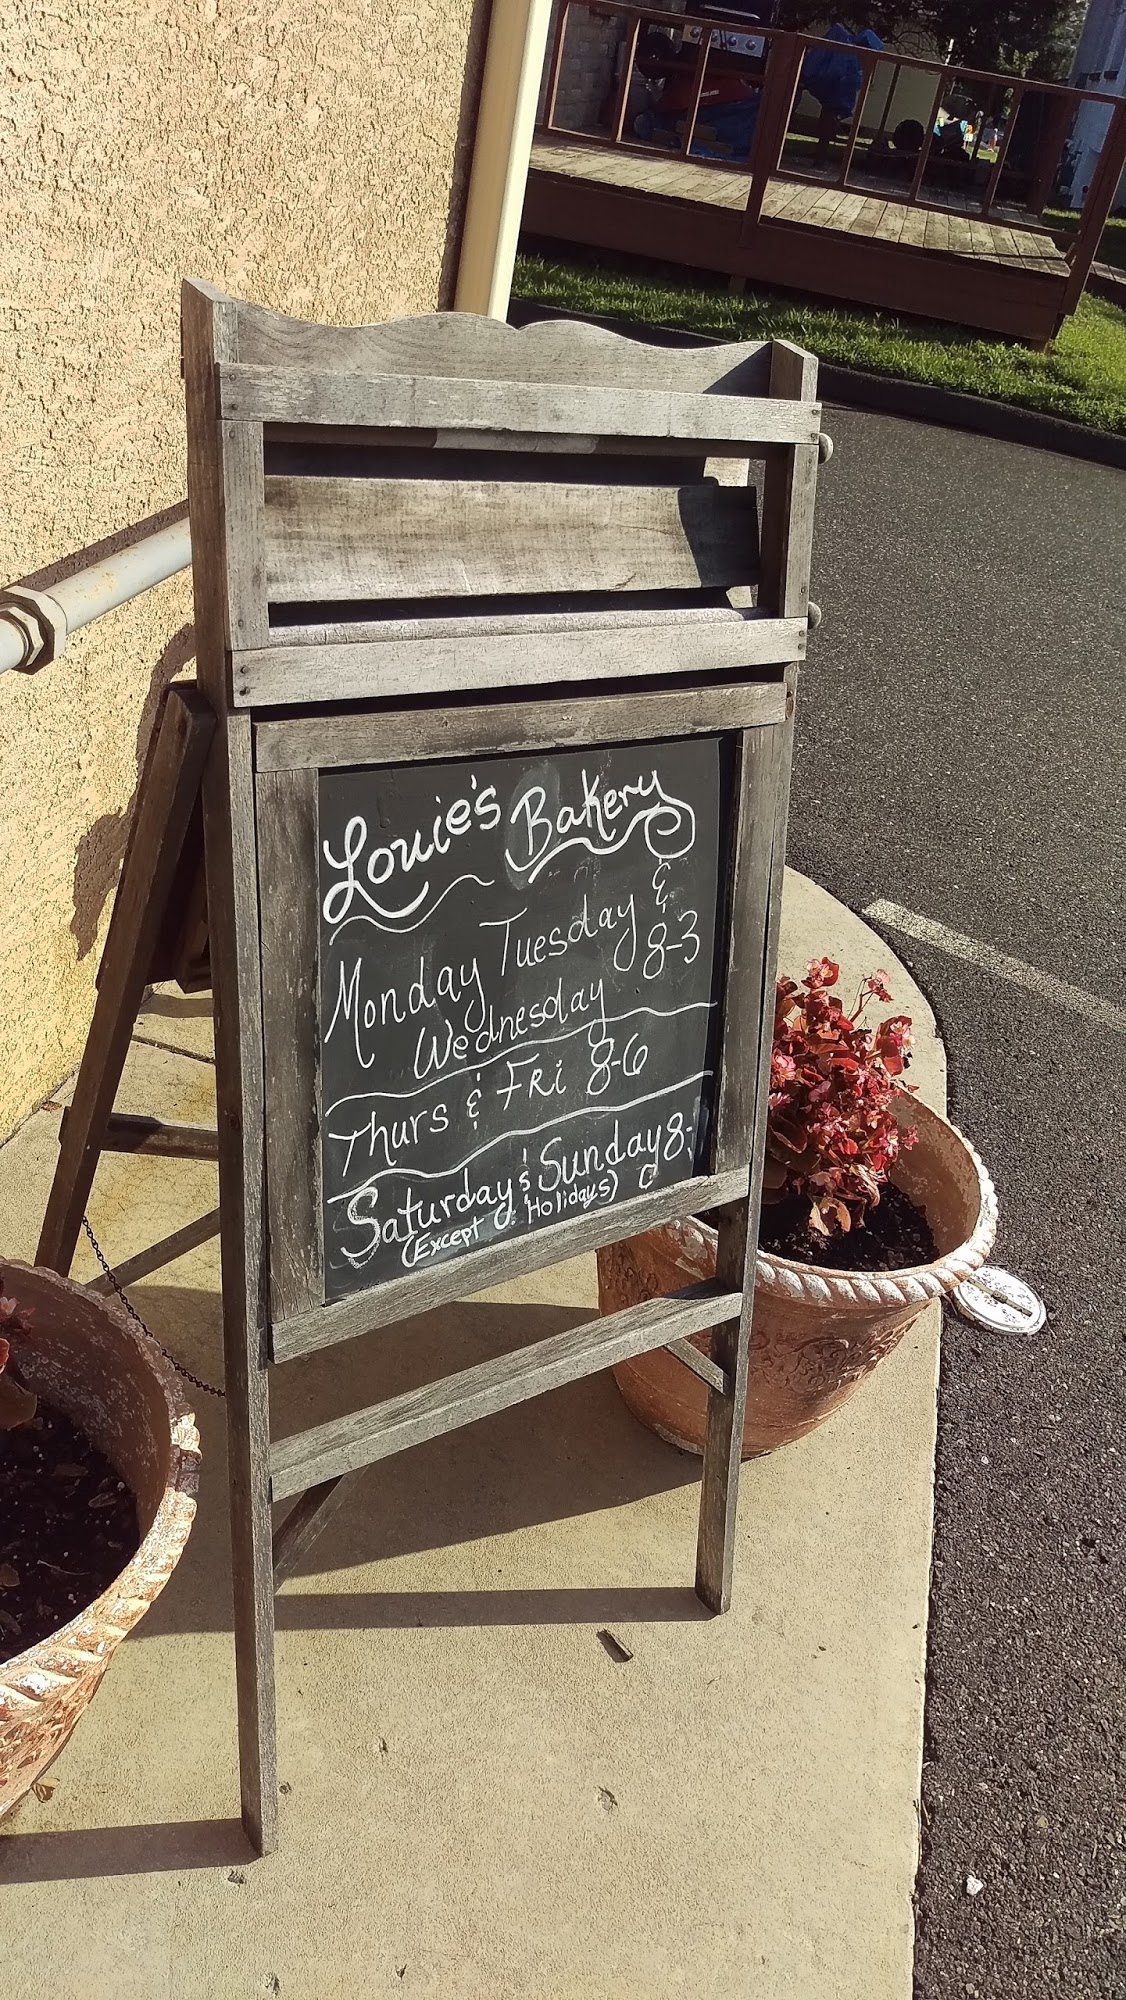 Louie's Bakery
Monday Tuesday &
Wednesday 8-3
Thurs & Fri 8-6
Saturday & Sunday 8-
(Except Holidays)